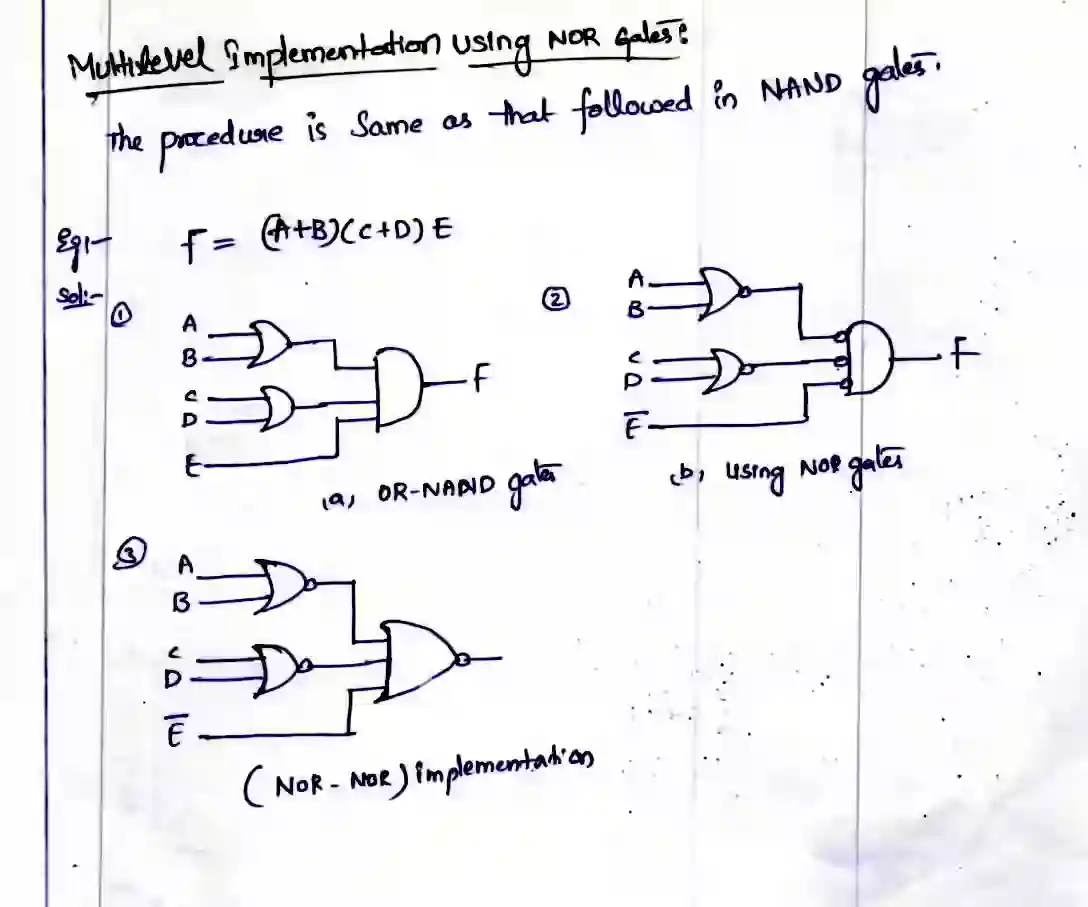 Multilevel Implementation using NOR gates:
The procedure is Same as that followed in NAND gates.
Eg:- F = (A+B)(C+D) E
Sol:-
①
A
B
C
D
E
F
(a) OR-NAND gates
②
A
B
C
D
E̅
F
(b) using NOR gates
③
A
B
C
D
E̅
(NOR - NOR) implementation